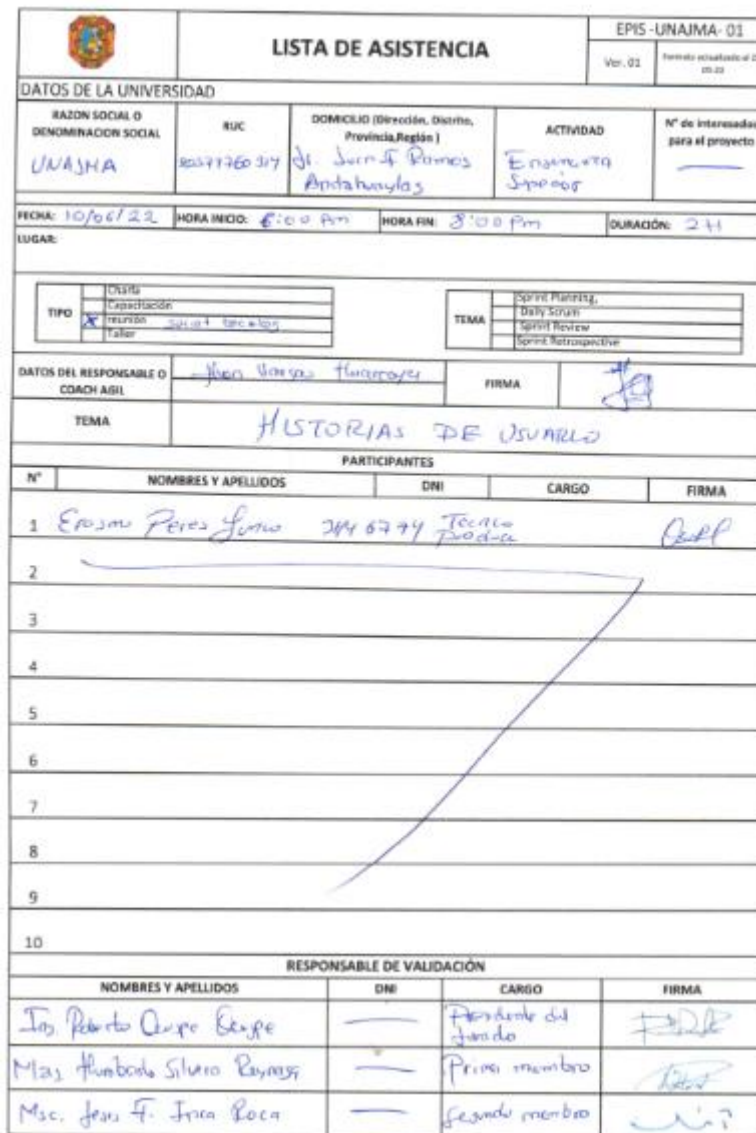 LISTA DE ASISTENCIA
EPIS -UNAJMA- 01
Ver. 01
DATOS DE LA UNIVERSIDAD
RAZON SOCIAL O DENOMINACION SOCIAL
RUC
DOMICILIO (Dirección, Distrito, Provincia,Región )
ACTIVIDAD
N° de interesados para el proyecto
UNAJMA
Ramos
Andahuaylas
FECHA: 10/06/22 HORA INICIO: 6:00 Pm HORA FIN: 8:00 Pm DURACIÓN: 2H
LUGAR:
TIPO
Charla
Capacitación
reunión
Taller
TEMA
Sprint Planning,
Daily Scrum
Sprint Review
Sprint Retrospective
DATOS DEL RESPONSABLE O COACH AGIL
FIRMA
TEMA
HISTORIAS DE USUARIO
PARTICIPANTES
N° NOMBRES Y APELLIDOS DNI CARGO FIRMA
1 Erasmo Peres
2
3
4
5
6
7
8
9
10
RESPONSABLE DE VALIDACIÓN
NOMBRES Y APELLIDOS DNI CARGO FIRMA
Ing Roberto Quispe Quispe Presidente del Jurado
Humberto Silvera Reynaga Primer miembro
Msc. Inca Roca Segundo miembro